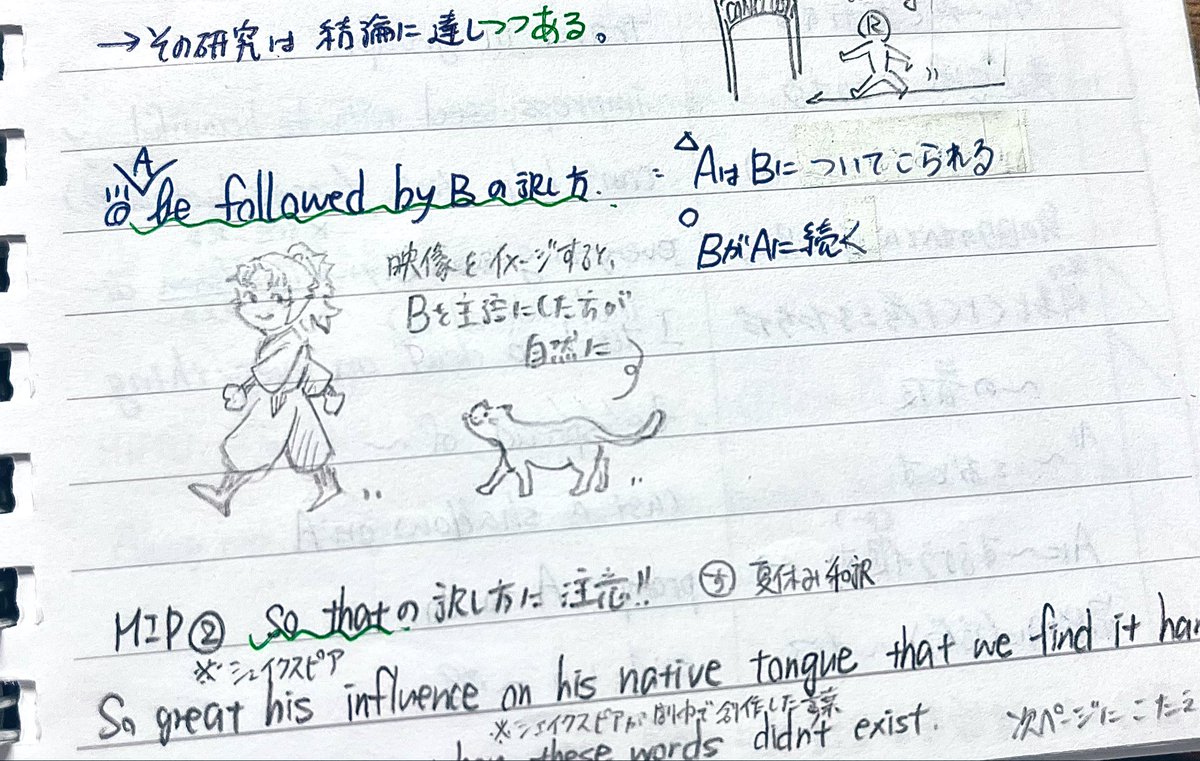 →その研究は 結論に達しつつある。
R
A
be followed by B の訳し方.
: △AはBに ついてこられる
○ BがAに続く
映像をイメージすると、
Bを主語にした方が
自然に
MIP② So thatの訳し方に注意!! 夏休み和訳
※シェイクスピア
So great his influence on his native tongue that we find it har
※シェイクスピアが劇中で創作した言葉
these words didn't exist. 次ページにこたえ